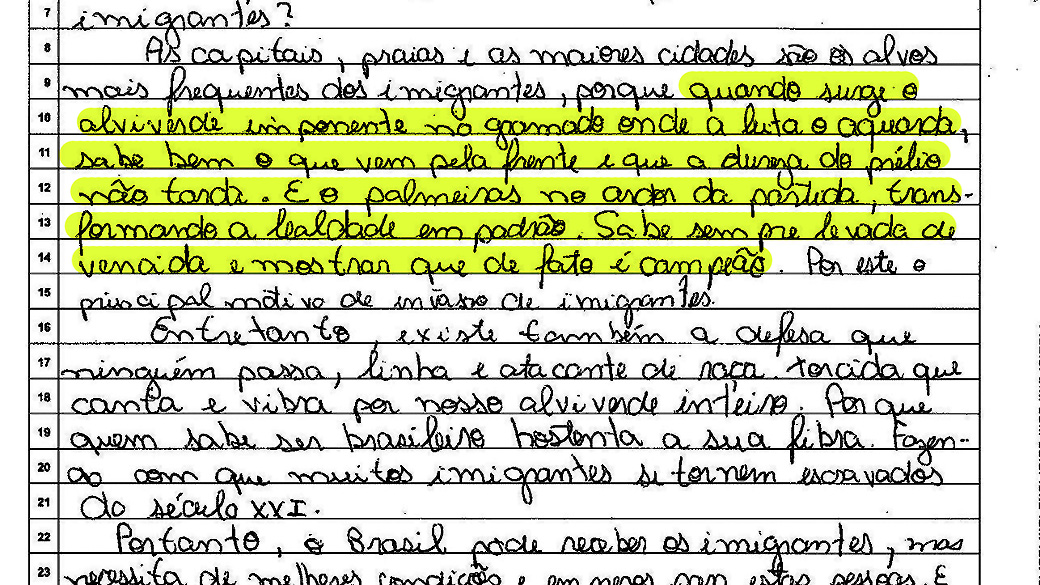 7 imigrantes?
8 As capitais, praias e as maiores cidades são os alvos
9 mais frequentes dos imigrantes, porque quando surge o
10 alviverde imponente no gramado onde a luta o aguarda,
11 sabe bem o que vem pela frente e que a dureza do prélio
12 não tarda. E o palmeiras no ardor da partida, trans-
13 formando a lealdade em padrão. Sabe sempre levada de
14 vencida e mostrar que de fato é campeão. Por este o
15 principal motivo de invasão de imigrantes.
16 Entretanto, existe também a defesa que
17 ninguém passa, linha e atacante de raça. torcida que
18 canta e vibra por nosso alviverde inteiro. Por que
19 quem sabe ser brasileiro hostenta a sua fibra. Fazen-
20 do com que muitos imigrantes se tornem escravados
21 do século XXI.
22 Portanto, o Brasil pode receber os imigrantes, mas
23 necessita de melhores condição e em neros para estas pessoas. E